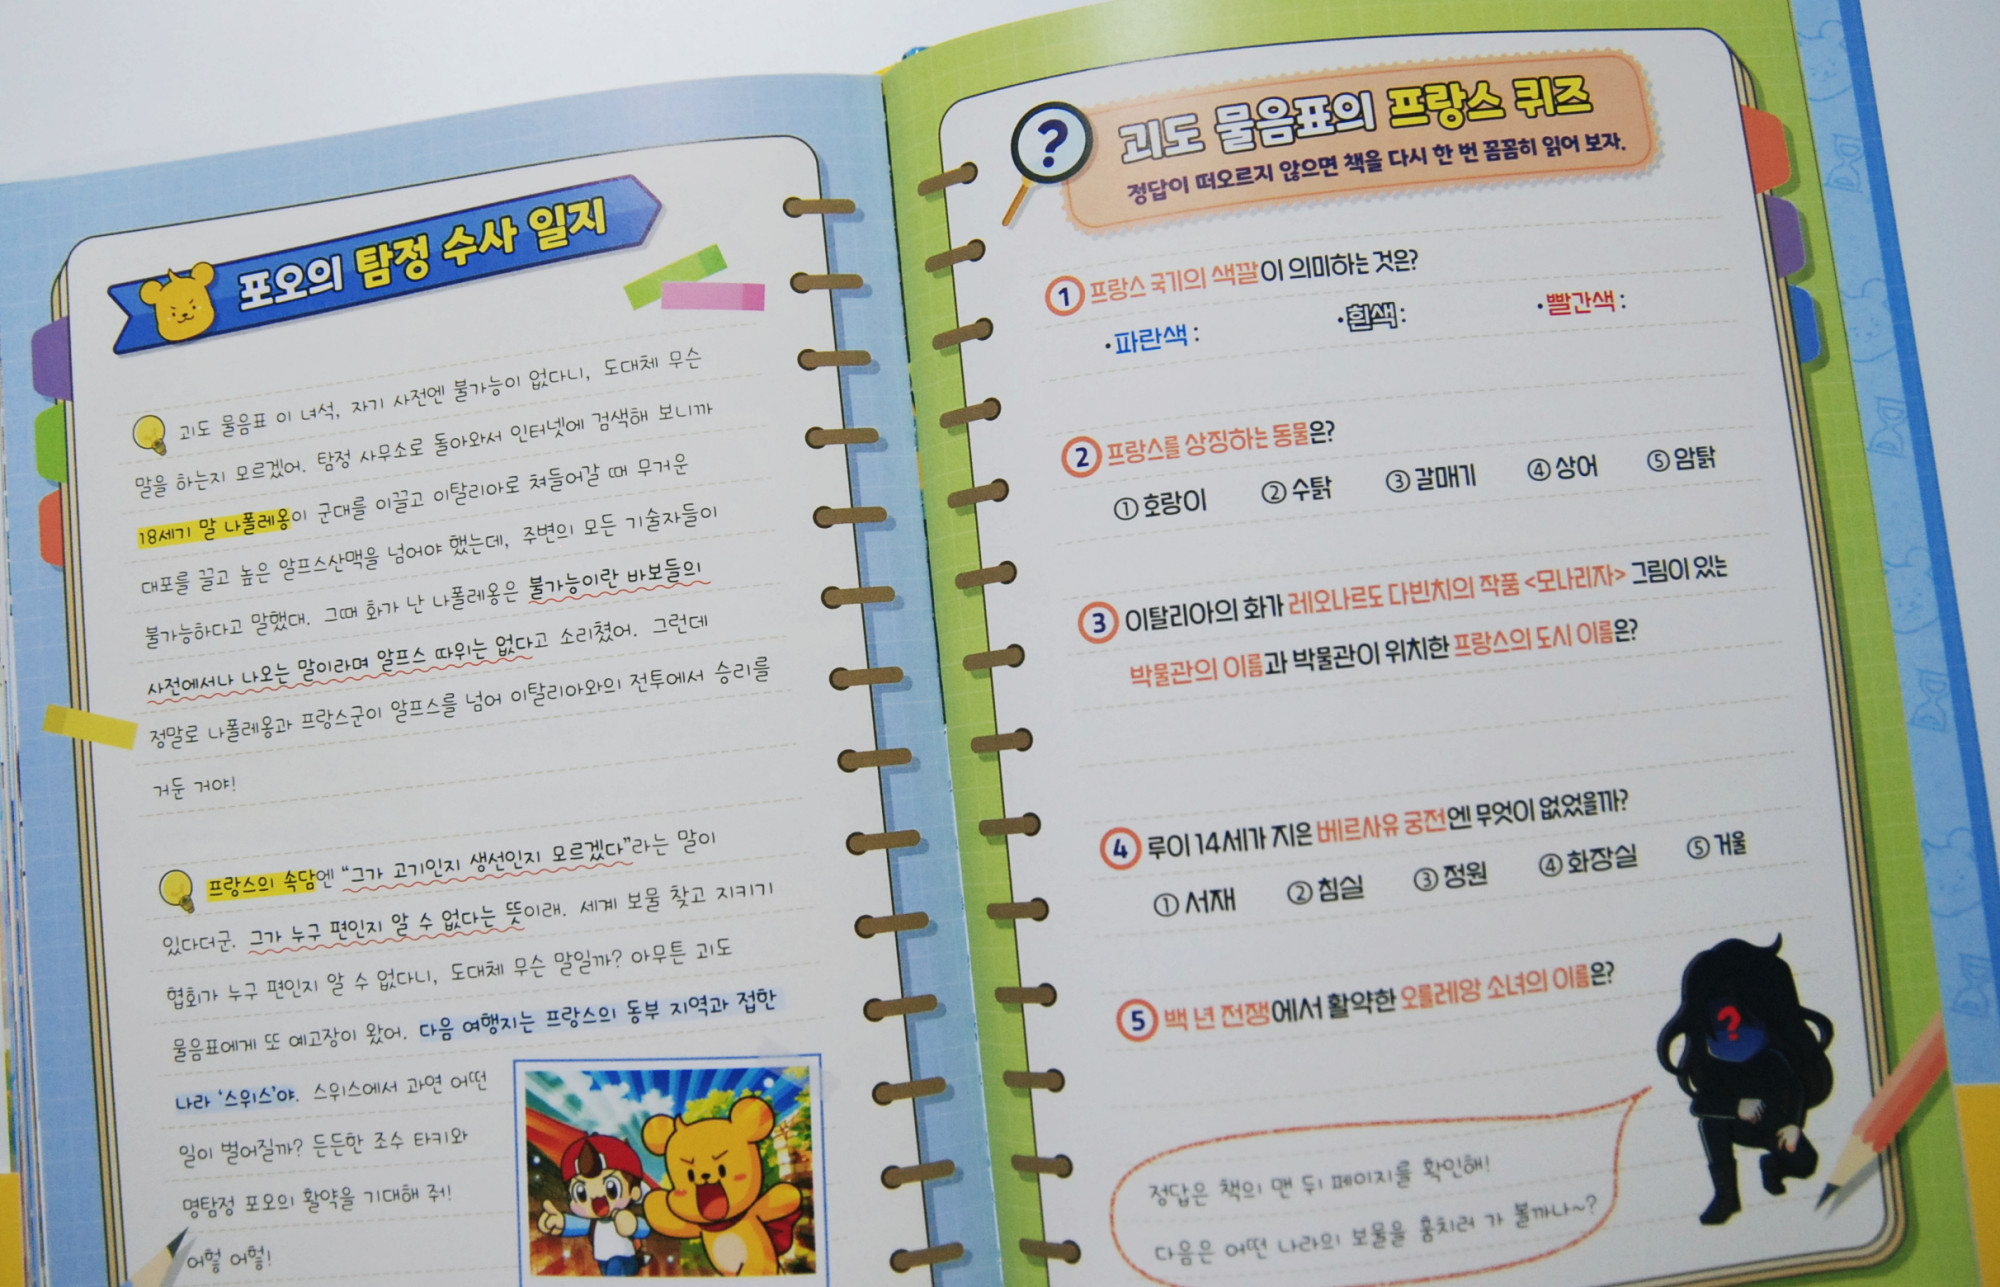 포오의 탐정 수사 일지
괴도 물음표 이 녀석, 자기 사전엔 불가능이 없다니, 도대체 무슨
말을 하는지 모르겠어. 탐정 사무소로 돌아와서 인터넷에 검색해 보니까
18세기 말 나폴레옹이 군대를 이끌고 이탈리아로 쳐들어갈 때 무거운
대포를 끌고 높은 알프스산맥을 넘어야 했는데, 주변의 모든 기술자들이
불가능하다고 말했대. 그때 화가 난 나폴레옹은 불가능이란 바보들의
사전에서나 나오는 말이라며 알프스 따위는 없다고 소리쳤어. 그런데
정말로 나폴레옹과 프랑스군이 알프스를 넘어 이탈리아와의 전투에서 승리를
거둔 거야!
프랑스의 속담엔 “그가 고기인지 생선인지 모르겠다”라는 말이
있다더군. 그가 누구 편인지 알 수 없다는 뜻이래. 세계 보물 찾고 지키기
협회가 누구 편인지 알 수 없다니, 도대체 무슨 말일까? 아무튼 괴도
물음표에게 또 예고장이 왔어. 다음 여행지는 프랑스의 동부 지역과 접한
나라 ‘스위스’야. 스위스에서 과연 어떤
일이 벌어질까? 든든한 조수 타키와
명탐정 포오의 활약을 기대해 줘!
어헣 어헣!
?
괴도 물음표의 프랑스 퀴즈
정답이 떠오르지 않으면 책을 다시 한 번 꼼꼼히 읽어 보자.
1 프랑스 국기의 색깔이 의미하는 것은?
•파란색: •흰색: •빨간색:
2 프랑스를 상징하는 동물은?
① 호랑이 ② 수탉 ③ 갈매기 ④ 상어 ⑤ 암탉
3 이탈리아의 화가 레오나르도 다빈치의 작품 <모나리자> 그림이 있는
박물관의 이름과 박물관이 위치한 프랑스의 도시 이름은?
4 루이 14세가 지은 베르사유 궁전엔 무엇이 없었을까?
① 서재 ② 침실 ③ 정원 ④ 화장실 ⑤ 거울
5 백 년 전쟁에서 활약한 오를레앙 소녀의 이름은?
?
정답은 책의 맨 뒤 페이지를 확인해!
다음은 어떤 나라의 보물을 훔치러 가 볼까나~?